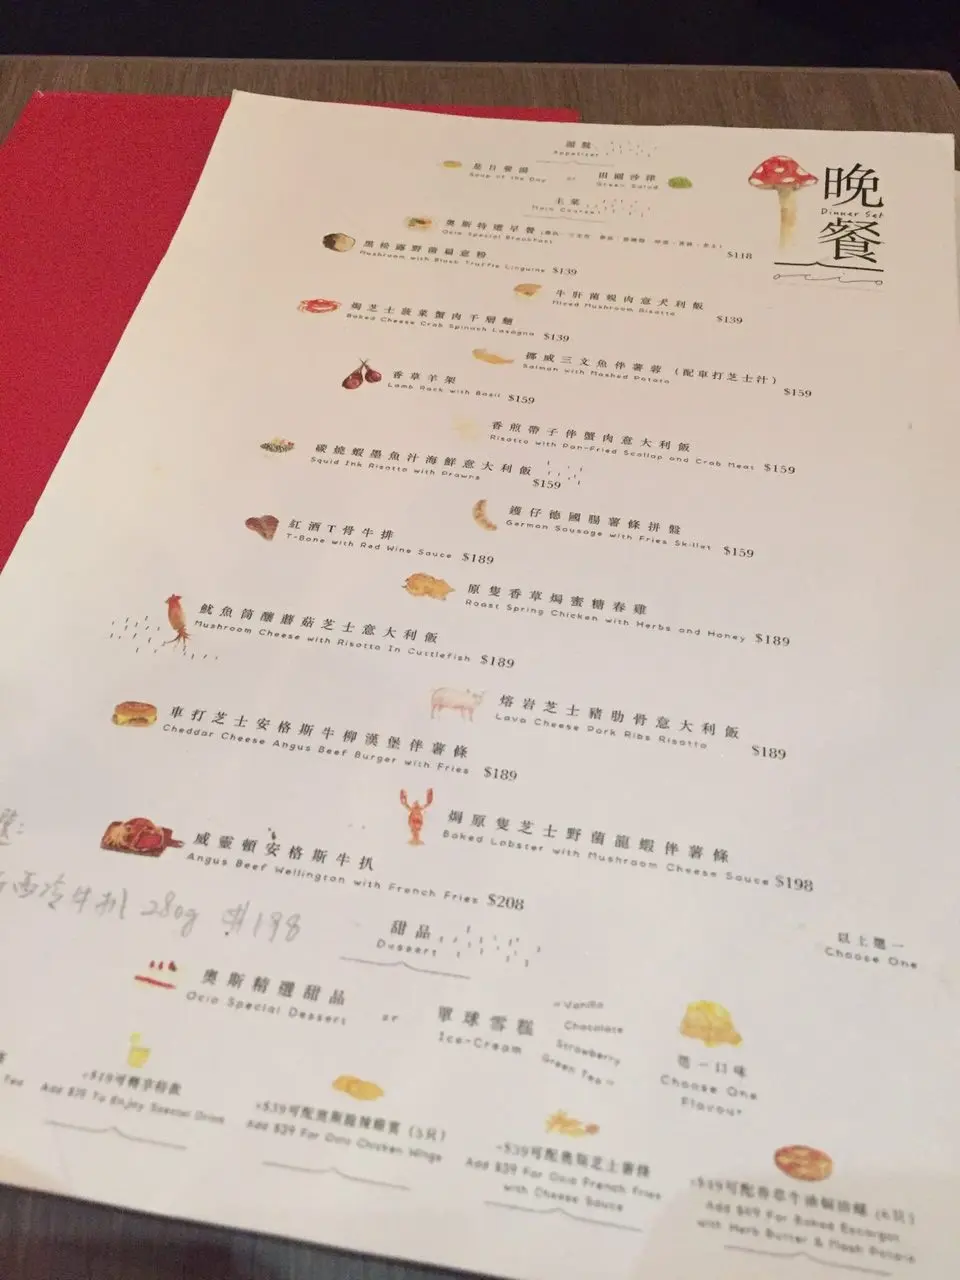 晚餐
Dinner Set
ocio
頭盤
Appetizer
是日餐湯 or 田園沙律
Soup of the Day Green Salad
主菜
Main Course
奧斯特選早餐
Ocio Special Breakfast $118
黑松露野菌扁意粉
Mushroom with Black Truffle Linguine $139
牛肝菌蜆肉意大利飯
Mixed Mushroom Risotto $139
焗芝士菠菜蟹肉千層麵
Baked Cheese Crab Spinach Lasagna $139
挪威三文魚伴薯蓉（配車打芝士汁）
Salmon with Mashed Potato $159
香草羊架
Lamb Rack with Basil $159
香煎帶子伴蟹肉意大利飯
Risotto with Pan-Fried Scallop and Crab Meat $159
碳燒蝦墨魚汁海鮮意大利飯
Squid Ink Risotto with Prawns $159
鑊仔德國腸薯條拼盤
German Sausage with Fries Skillet $159
紅酒T骨牛排
T-Bone with Red Wine Sauce $189
原隻香草焗蜜糖春雞
Roast Spring Chicken with Herbs and Honey $189
魷魚筒釀蘑菇芝士意大利飯
Mushroom Cheese with Risotto In Cuttlefish $189
熔岩芝士豬肋骨意大利飯
Lava Cheese Pork Ribs Risotto $189
車打芝士安格斯牛柳漢堡伴薯條
Cheddar Cheese Angus Beef Burger with Fries $189
焗原隻芝士野菌龍蝦伴薯條
Baked Lobster with Mushroom Cheese Sauce $198
威靈頓安格斯牛扒
Angus Beef Wellington with French Fries $208
西冷牛扒 280g $198
以上選一
Choose One
甜品
Dessert
奧斯精選甜品 or 單球雪糕
Ocio Special Dessert Ice-Cream
Vanilla
Chocolate
Strawberry
Green Tea
選一口味
Choose One
Flavour
Tea
+$19可轉享特飲
Add $19 To Enjoy Special Drink
Add $39 For Ocio Chicken Wings
+$39可配奧斯芝士薯條
Add $39 For Ocio French Fries
with Cheese Sauce
Add $49 For Baked Escargot
with Herb Butter & Mash Potato